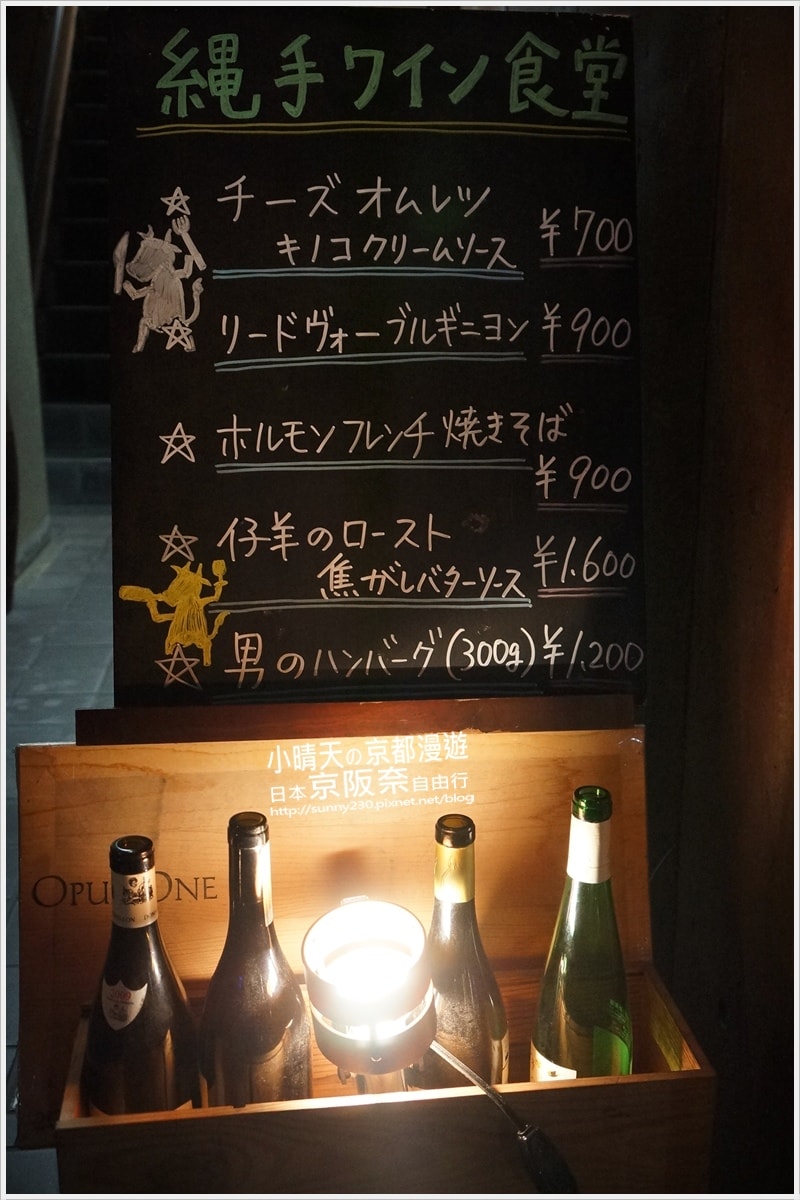 縄手ワイン食堂
チーズオムレツ
キノコクリームソース ¥700
リードヴォーブルギニヨン ¥900
ホルモンフレンチ焼きそば
¥900
仔羊のロースト
焦がしバターソース ¥1.600
男のハンバーグ(300g) ¥1.200
小晴天の京都漫遊
日本京阪奈自由行
http://sunny230.pixnet.net/blog
OPU ONE